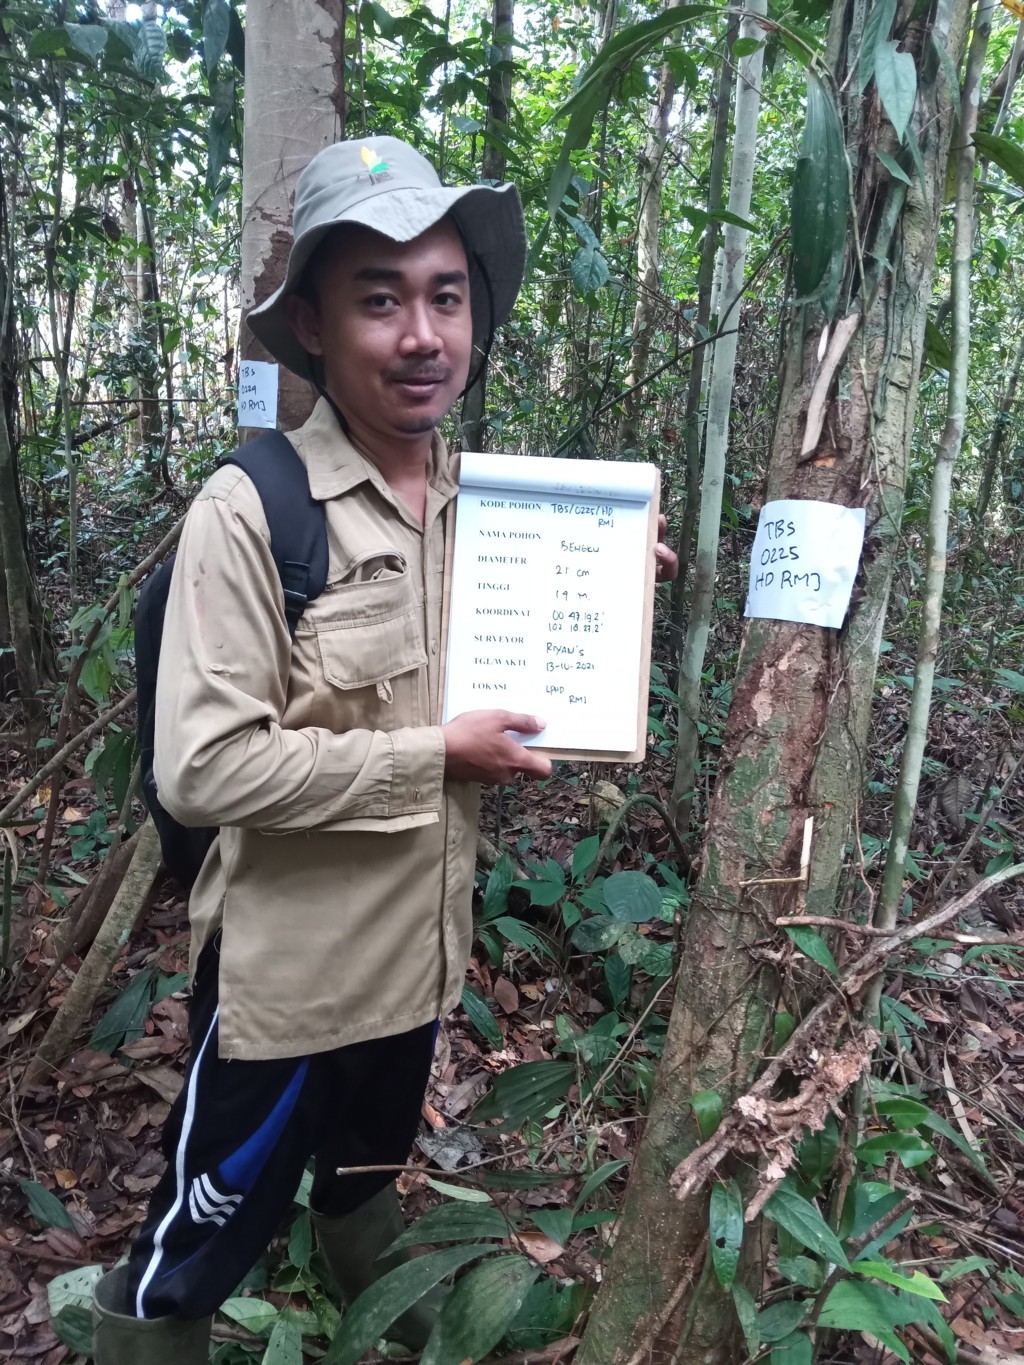 TBS
0224
HD RMJ
KODE POHON TBS/0225/HD
RMJ
NAMA POHON
BENGKU
DIAMETER 21 cm
TINGGI 19 m
KOORDINAT 00 47.19.2"
102 18.27.2"
SURVEYOR RIYAN'S
TGL/WAKTU 13-10-2021
LOKASI LPHD
RMJ
TBS
0225
HD RMJ